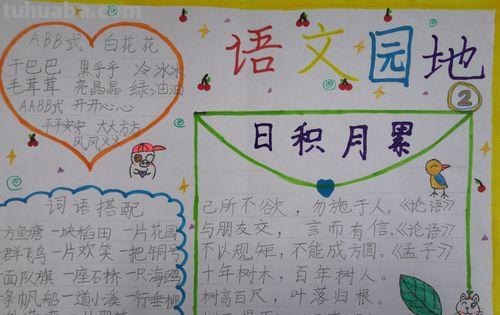 tuhuaba.com
语文园地
②
ABB式 白花花
干巴巴 黑乎乎 冷冰冰
毛茸茸 亮晶晶 绿油油
AABB式 开开心心
平平安安 大大方方
风风火火
日积月累
己所不欲，勿施于人。《论语》
与朋友交，言而有信。《论语》
不以规矩，不能成方圆。《孟子》
十年树木，百年树人。
树高百尺，叶落归根。
词语搭配
方鱼塘 一块稻田 一片花园
群飞鸟 一片欢笑 一把铜号
面队旗 一座石桥 一只海鸥
条帆船 一道小溪 一行垂柳